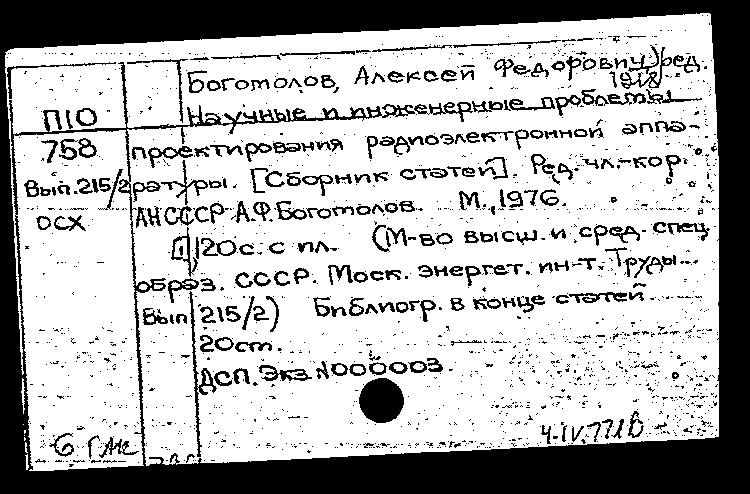 Боготолов, Алексей Федорович, ред.
1918
П10
Научные и инженерные проблемы
758 проектирования радиоэлектронной аппа-
Вып.215/2 ратуры. [Сборник статей]. Ред. чл.-кор.
ОСХ АН СССР А.Ф.Боготолов. М., 1976.
[1], 120с. с пл. (М-во высш. и сред. спец.
образ. СССР. Моск. энергет. ин-т. Труды...
Вып. 215/2) Библиогр. в конце статей.
20ст.
ДСП. Экз. N000003.
6 ГАК
4-IV.77